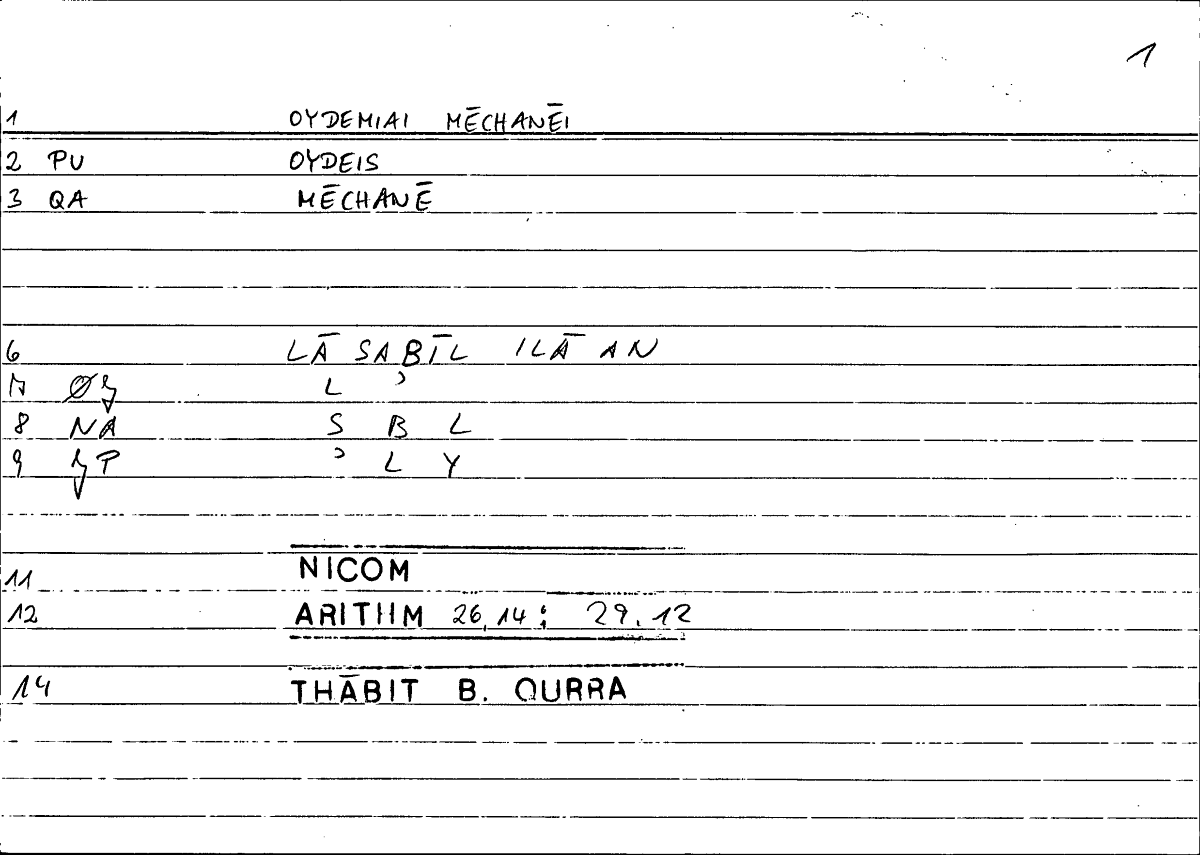 1
1 OYDEMIAI MĒCHANĒI
2 PU OYDEIS
3 QA MĒCHANĒ
6 LĀ SABĪL ILĀ AN
7 L ʾ
8 NA S B L
9 ʾ L Y
11 NICOM
12 ARITHM 26,14; 29.12
14 THĀBIT B. QURRA